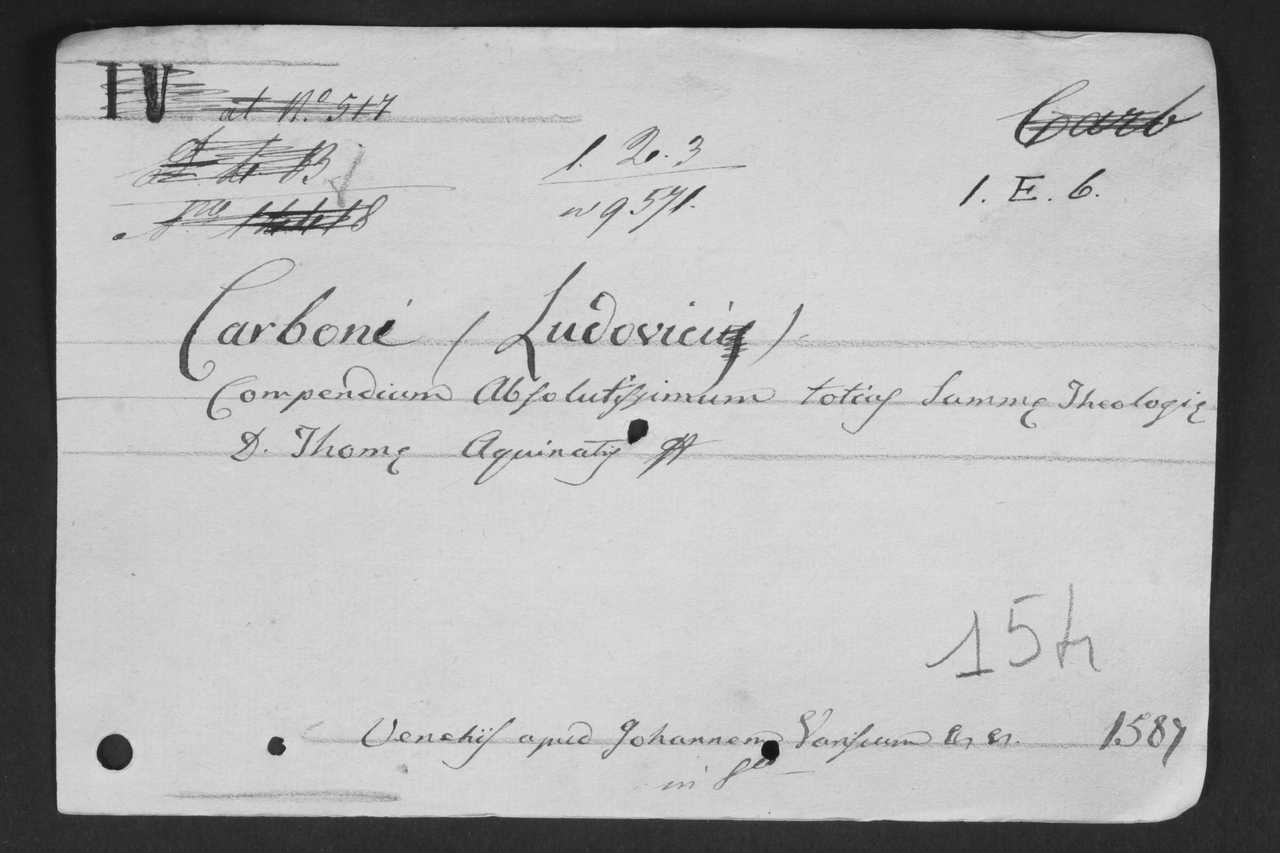 IV at No. 517
Carb
1. 2. 3
1. E. 6.
9571.
Carboni (Ludovici)
Compendium Absolutissimum totius Summę Theologię
D. Thomę Aquinatis
154
Venetiis apud Johannem Variscum &c. &c. 1587
in 8o